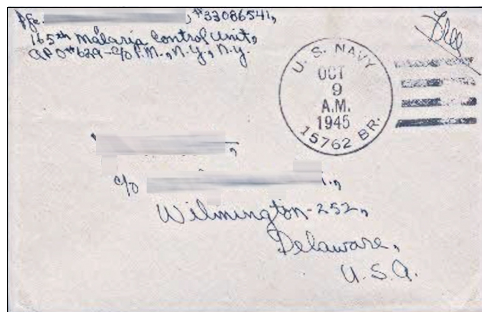 Pfc. #33086541,
165th Malaria Control Unit,
APO #629 - c/o P.M., N.Y., N.Y.
Free
U. S. NAVY
OCT
9
A.M.
1945
15762 BR.
c/o
Wilmington - 252,
Delaware,
U.S.A.